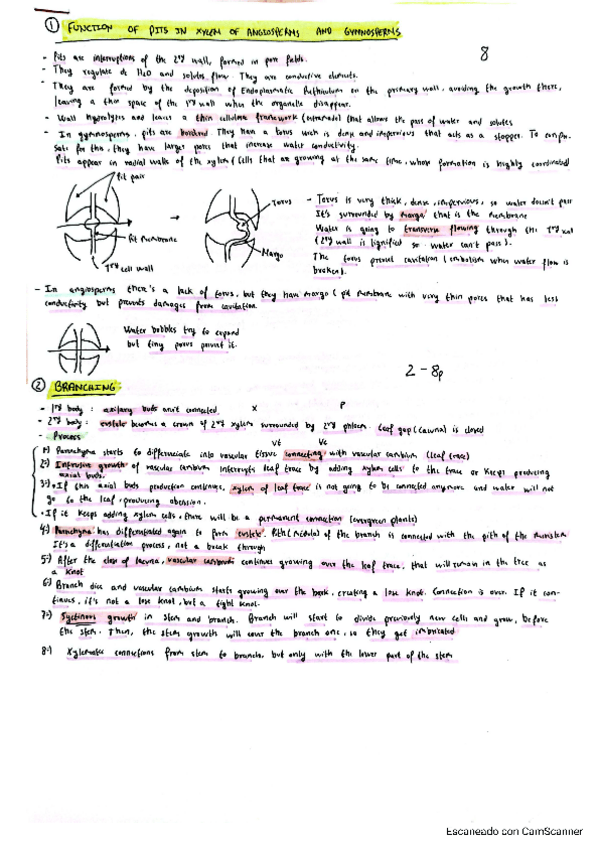 ① FUNCTION OF PITS IN XYLEM OF ANGIOSPERMS AND GYMNOSPERMS
8
- Pits are interruptions of the 2ry wall, formed in pore fields.
- They regulate de H2O and solutes flow. They are conductive elements.
- They are formed by the deposition of Endoplasmatic Rethiculum on the primary wall, avoiding the growth there,
leaving a thin space of the 1ry wall when the organelle disappear.
- Wall hydrolysis and leaves a thin cellulose framework that allows the pass of water and solutes
- In gymnosperms, pits are bordered. They have a torus wich is dense and impervious that acts as a stopper. To compen-
sate for this, they have larger pores that increase water conductivity.
Pits appear in radial walls of the xylem (cells that are growing at the same time, whose formation is highly coordinated
Pit pair
Pit membrane
1ry cell wall
Torus
Margo
- Torus is very thick, dense, impervious, so water doesn't pass
It's surrounded by margo that is the membrane
Water is going to transverse flowing through the 1ry wall
(2ry wall is lignified so water can't pass).
The torus prevent cavitation (embolism when water flow is
broken).
- In angiosperms there's a lack of torus, but they have margo (pit membrane with very thin pores that has less
conductivity but prevents damages from cavitation.
Water bubbles try to expand
but tiny pores prevent it.
2 - 8p
② BRANCHING:
- 1ry body: axillary buds aren't connected.
x
p
- 2ry body: eustele becomes a crown of 2ry xylem surrounded by 2ry phloem. Leaf gap (lacuna) is closed
- Process
Vt
Vc
1º) Parenchyma starts to differenciate into vascular tissue connecting with vascular cambium (leaf trace)
2º) Intrusive growth of vascular cambium interrupts leaf trace by adding xylem cells to the trace or keeps producing
axial buds.
3º) • If this axial buds production continues, xylem of leaf trace is not going to be connected anymore and water will not
go to the leaf, producing abscission.
• If it keeps adding xylem cells, there will be a permanent connection (evergreen plants)
4º) Parenchyma has differentiated again to form eustele. Pith (médula) of the branch is connected with the pith of the meristem
It's a differentiation process, not a break through
5º) After the clos of lacuna, vascular cambium continues growing over the leaf trace, that will remain in the tree as
a knot
6º) Branch dies and vascular cambium starts growing over the bark, creating a lose knot. Connection is over. If it con-
tinues, it's not a lose knot, but a tight knot.
7º) growth in stem and branch. Branch will start to divide previously new cells and grow, before
the stem. Then, the stem growth will cover the branch one, so they get imbricated
8º) Xylematic connections from stem to branch, but only with the lower part of the stem
Escaneado con CamScanner